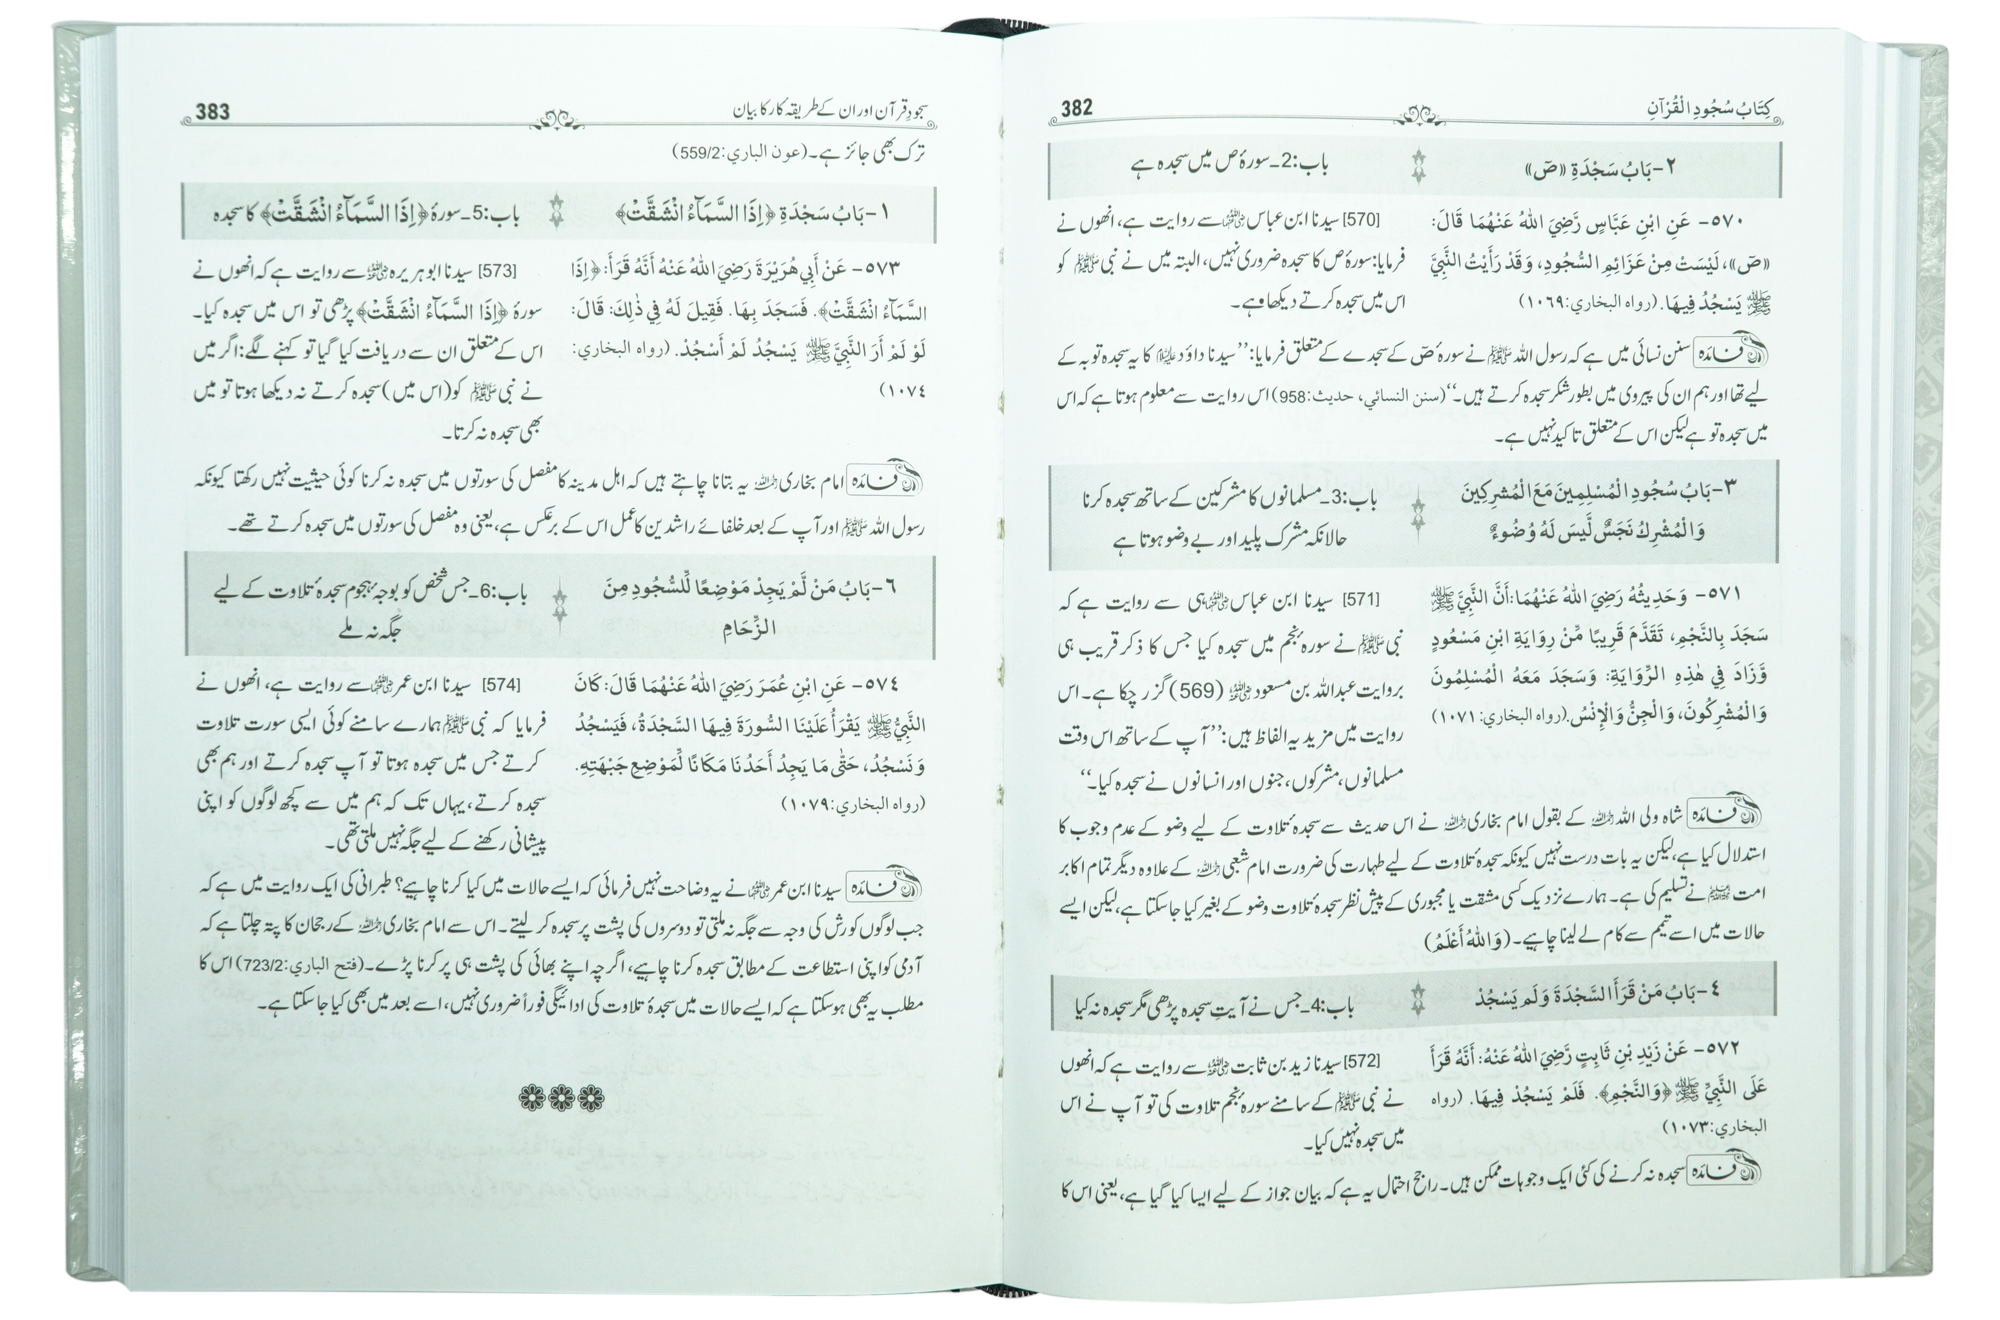 كِتَابُ سُجُودِ الْقُرْآنِ
382
٢- بَابُ سَجْدَةِ «صٓ»
باب:2۔ سورۂ ص میں سجدہ ہے
٥٧٠- عَنِ ابْنِ عَبَّاسٍ رَّضِيَ اللهُ عَنْهُمَا قَالَ:
«صٓ»، لَيْسَتْ مِنْ عَزَائِمِ السُّجُودِ، وَقَدْ رَأَيْتُ النَّبِيَّ
ﷺ يَسْجُدُ فِيهَا. (رواه البخاري: ١٠٦٩)
[570] سیدنا ابن عباس رضی اللہ عنہما سے روایت ہے، انھوں نے
فرمایا: سورۂ ص کا سجدہ ضروری نہیں، البتہ میں نے نبی ﷺ کو
اس میں سجدہ کرتے دیکھا وہے۔
فائدہ سنن نسائی میں ہے کہ رسول اللہ ﷺ نے سورۂ صٓ کے سجدے کے متعلق فرمایا: ’’سیدنا داؤد علیہ السلام کا یہ سجدہ توبہ کے
لیے تھا اور ہم ان کی پیروی میں بطور شکر سجدہ کرتے ہیں۔‘‘ (سنن النسائي، حديث:958) اس روایت سے معلوم ہوتا ہے کہ اس
میں سجدہ تو ہے لیکن اس کے متعلق تاکید نہیں ہے۔
٣- بَابُ سُجُودِ الْمُسْلِمِينَ مَعَ الْمُشْرِكِينَ
وَالْمُشْرِكُ نَجَسٌ لَّيْسَ لَهُ وُضُوءٌ
باب:3۔ مسلمانوں کا مشرکین کے ساتھ سجدہ کرنا
حالانکہ مشرک پلید اور بے وضو ہوتا ہے
٥٧١- وَحَدِيثُهُ رَضِيَ اللهُ عَنْهُمَا: أَنَّ النَّبِيَّ ﷺ
سَجَدَ بِالنَّجْمِ، تَقَدَّمَ قَرِيبًا مِّنْ رِوَايَةِ ابْنِ مَسْعُودٍ
وَّزَادَ فِي هٰذِهِ الرِّوَايَةِ: وَسَجَدَ مَعَهُ الْمُسْلِمُونَ
وَالْمُشْرِكُونَ، وَالْجِنُّ وَالْإِنْسُ. (رواه البخاري: ١٠٧١)
[571] سیدنا ابن عباس رضی اللہ عنہما ہی سے روایت ہے کہ
نبی ﷺ نے سورۂ نجم میں سجدہ کیا جس کا ذکر قریب ہی
بروایت عبداللہ بن مسعود رضی اللہ عنہ (569) گزر چکا ہے۔ اس
روایت میں مزید یہ الفاظ ہیں: ’’آپ کے ساتھ اس وقت
مسلمانوں، مشرکوں، جنوں اور انسانوں نے سجدہ کیا۔‘‘
فائدہ شاہ ولی اللہ رحمہ اللہ کے بقول امام بخاری رحمہ اللہ نے اس حدیث سے سجدۂ تلاوت کے لیے وضو کے عدم وجوب کا
استدلال کیا ہے، لیکن یہ بات درست نہیں کیونکہ سجدۂ تلاوت کے لیے طہارت کی ضرورت امام شعبی رحمہ اللہ کے علاوہ دیگر تمام اکابر
امت نے تسلیم کی ہے۔ ہمارے نزدیک کسی مشقت یا مجبوری کے پیش نظر سجدۂ تلاوت وضو کے بغیر کیا جاسکتا ہے، لیکن ایسے
حالات میں اسے تیمم سے کام لے لینا چاہیے۔ (وَاللهُ أَعْلَمُ)
٤- بَابُ مَنْ قَرَأَ السَّجْدَةَ وَلَمْ يَسْجُدْ
باب:4۔ جس نے آیت سجدہ پڑھی مگر سجدہ نہ کیا
٥٧٢- عَنْ زَيْدِ بْنِ ثَابِتٍ رَّضِيَ اللهُ عَنْهُ: أَنَّهُ قَرَأَ
عَلَى النَّبِيِّ ﷺ ﴿وَالنَّجْمِ﴾. فَلَمْ يَسْجُدْ فِيهَا. (رواه
البخاري: ١٠٧٣)
[572] سیدنا زید بن ثابت رضی اللہ عنہ سے روایت ہے کہ انھوں
نے نبی ﷺ کے سامنے سورۂ نجم تلاوت کی تو آپ نے اس
میں سجدہ نہیں کیا۔
فائدہ سجدہ نہ کرنے کی کئی ایک وجوہات ممکن ہیں۔ راجح احتمال یہ ہے کہ بیان جواز کے لیے ایسا کیا گیا ہے، یعنی اس کا
سجود قرآن اور ان کے طریقہ کار کا بیان
383
ترک بھی جائز ہے۔ (عون الباري:559/2)
١- بَابُ سَجْدَةِ ﴿إِذَا السَّمَآءُ انْشَقَّتْ﴾
باب:5۔ سورۂ ﴿إِذَا السَّمَآءُ انْشَقَّتْ﴾ کا سجدہ
٥٧٣- عَنْ أَبِي هُرَيْرَةَ رَضِيَ اللهُ عَنْهُ أَنَّهُ قَرَأَ: ﴿إِذَا
السَّمَآءُ انْشَقَّتْ﴾. فَسَجَدَ بِهَا. فَقِيلَ لَهُ فِي ذٰلِكَ: قَالَ:
لَوْ لَمْ أَرَ النَّبِيَّ ﷺ يَسْجُدُ لَمْ أَسْجُدْ. (رواه البخاري:
١٠٧٤)
[573] سیدنا ابو ہریرہ رضی اللہ عنہ سے روایت ہے کہ انھوں نے
سورۂ ﴿إِذَا السَّمَآءُ انْشَقَّتْ﴾ پڑھی تو اس میں سجدہ کیا۔
اس کے متعلق ان سے دریافت کیا گیا تو کہنے لگے: اگر میں
نے نبی ﷺ کو (اس میں) سجدہ کرتے نہ دیکھا ہوتا تو میں
بھی سجدہ نہ کرتا۔
فائدہ امام بخاری رحمہ اللہ یہ بتانا چاہتے ہیں کہ اہل مدینہ کا مفصل کی سورتوں میں سجدہ نہ کرنا کوئی حیثیت نہیں رکھتا کیونکہ
رسول اللہ ﷺ اور آپ کے بعد خلفائے راشدین کا عمل اس کے برعکس ہے، یعنی وہ مفصل کی سورتوں میں سجدہ کرتے تھے۔
٦- بَابُ مَنْ لَّمْ يَجِدْ مَوْضِعًا لِّلسُّجُودِ مِنَ
الزِّحَامِ
باب:6۔ جس شخص کو بوجہ ہجوم سجدۂ تلاوت کے لیے
جگہ نہ ملے
٥٧٤- عَنِ ابْنِ عُمَرَ رَضِيَ اللهُ عَنْهُمَا قَالَ: كَانَ
النَّبِيُّ ﷺ يَقْرَأُ عَلَيْنَا السُّورَةَ فِيهَا السَّجْدَةُ، فَيَسْجُدُ
وَنَسْجُدُ، حَتّٰى مَا يَجِدُ أَحَدُنَا مَكَانًا لِّمَوْضِعِ جَبْهَتِهِ.
(رواه البخاري: ١٠٧٩)
[574] سیدنا ابن عمر رضی اللہ عنہما سے روایت ہے، انھوں نے
فرمایا کہ نبی ﷺ ہمارے سامنے کوئی ایسی سورت تلاوت
کرتے جس میں سجدہ ہوتا تو آپ سجدہ کرتے اور ہم بھی
سجدہ کرتے، یہاں تک کہ ہم میں سے کچھ لوگوں کو اپنی
پیشانی رکھنے کے لیے جگہ نہیں ملتی تھی۔
فائدہ سیدنا ابن عمر رضی اللہ عنہما نے یہ وضاحت نہیں فرمائی کہ ایسے حالات میں کیا کرنا چاہیے؟ طبرانی کی ایک روایت میں ہے کہ
جب لوگوں کو رش کی وجہ سے جگہ نہ ملتی تو دوسروں کی پشت پر سجدہ کر لیتے۔ اس سے امام بخاری رحمہ اللہ کے رجحان کا پتہ چلتا ہے کہ
آدمی کو اپنی استطاعت کے مطابق سجدہ کرنا چاہیے، اگرچہ اپنے بھائی کی پشت ہی پر کرنا پڑے۔ (فتح الباري:723/2) اس کا
مطلب یہ بھی ہوسکتا ہے کہ ایسے حالات میں سجدۂ تلاوت کی ادائیگی فوراً ضروری نہیں، اسے بعد میں بھی کیا جاسکتا ہے۔